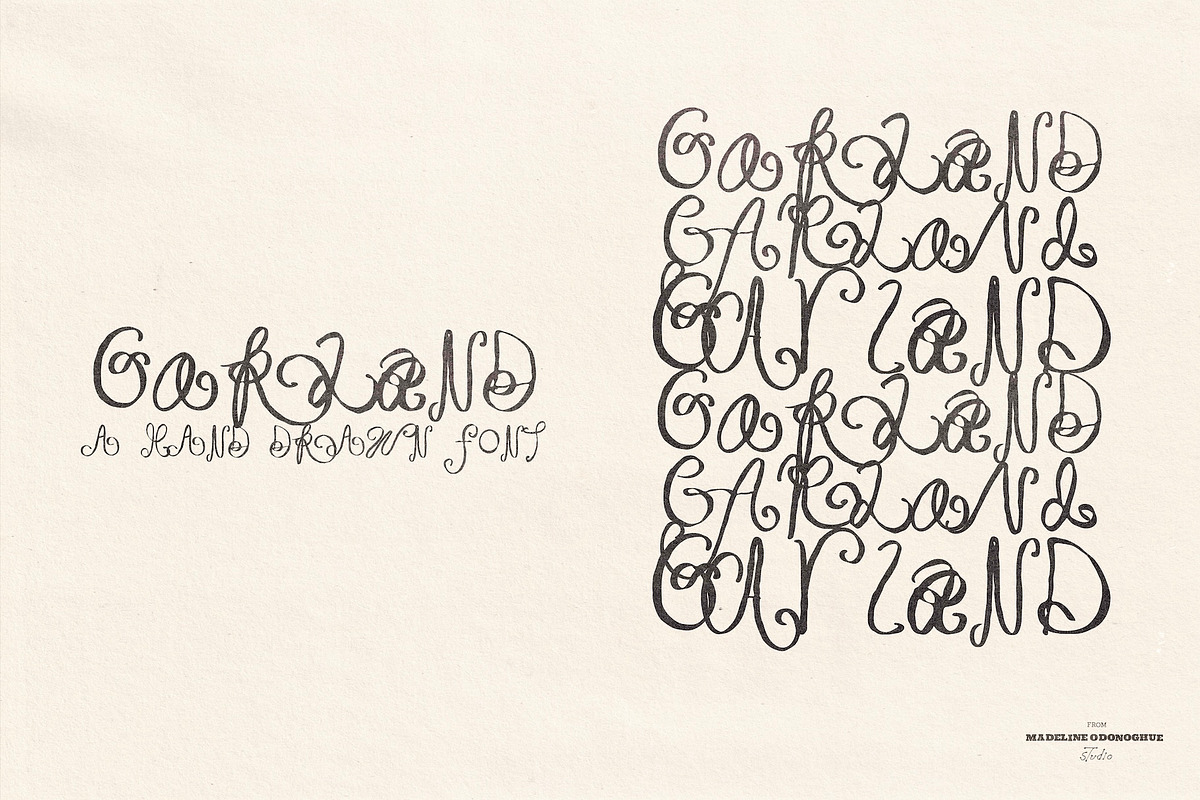 GaRLaND
A HAND DRAWN FONT
GaRLaND
GARLaNd
GArlaND
GaRLaND
GARLaNd
GArlaND
FROM
MADELINE ODONOGHUE
Studio